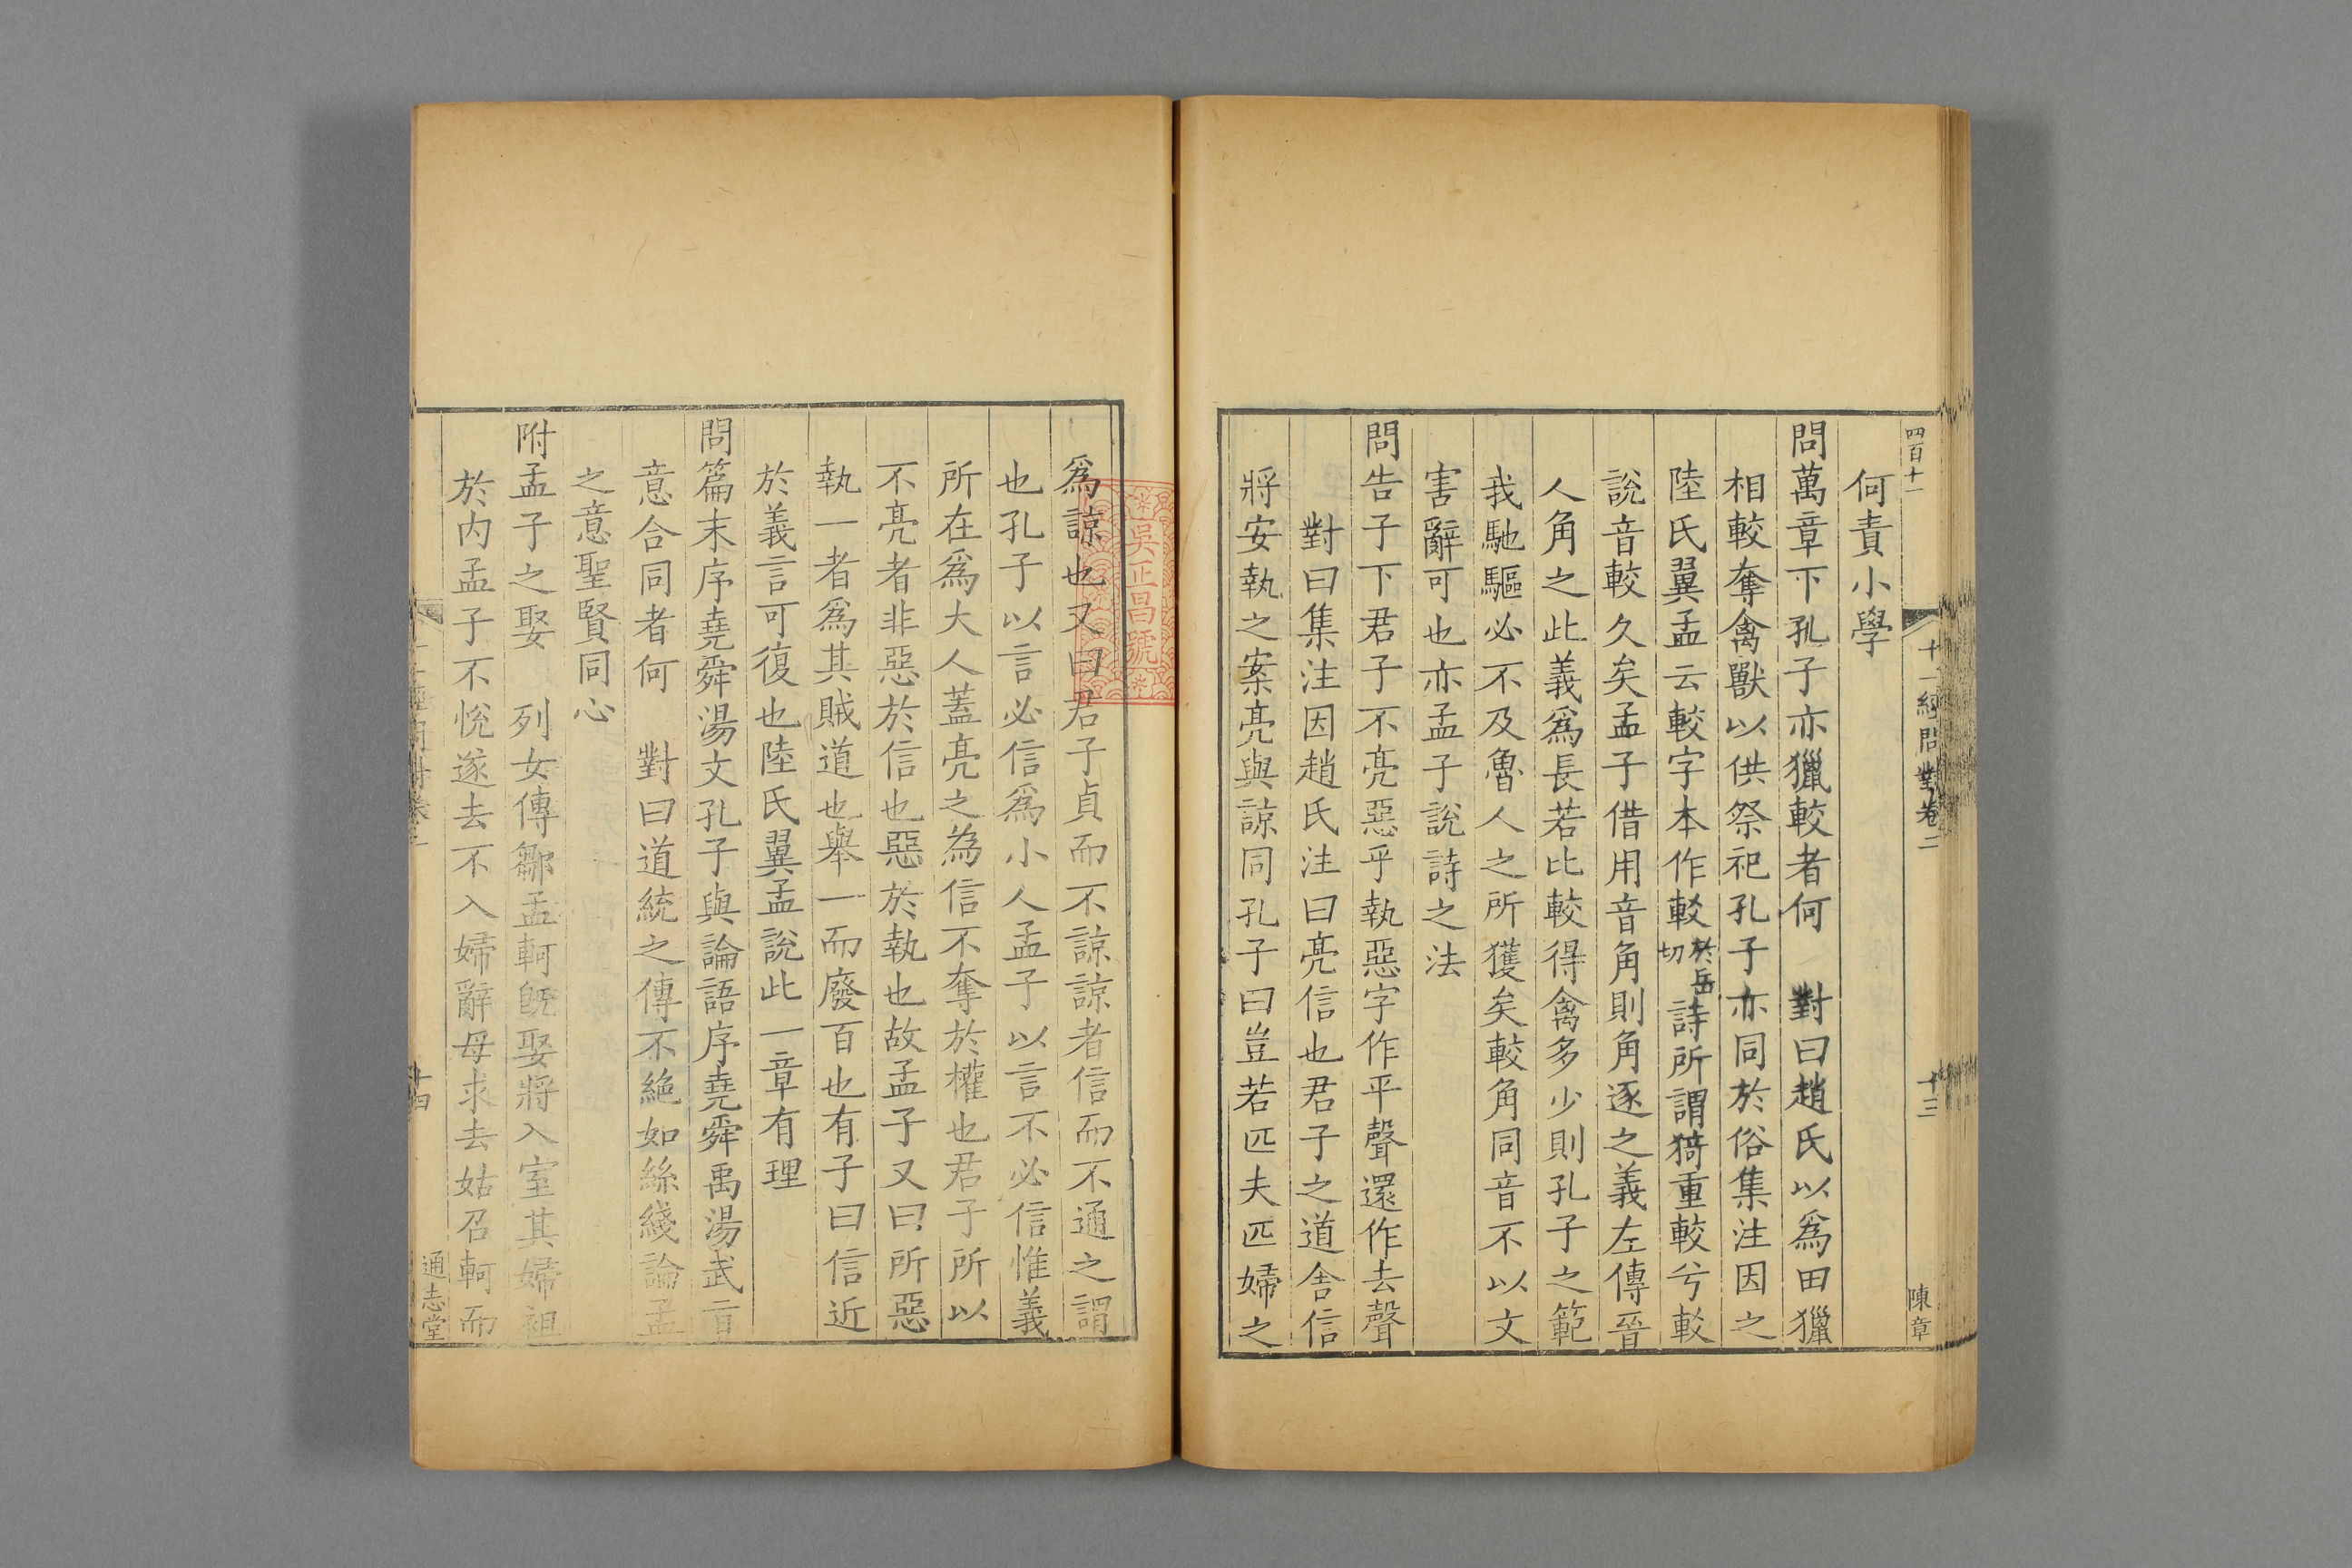 四百十一
十一經問對卷二
十三
陳章
何責小學
問萬章下孔子亦獵較者何　對曰趙氏以爲田獵
相較奪禽獸以供祭祀孔子亦同於俗集注因之
陸氏翼孟云較字本作較於岳切詩所謂猗重較兮較
說音較久矣孟子借用音角則角逐之義左傳晉
人角之此義爲長若比較得禽多少則孔子之範
我馳驅必不及魯人之所獲矣較角同音不以文
害辭可也亦孟子說詩之法
問告子下君子不亮惡乎執惡字作平聲還作去聲
對曰集注因趙氏注曰亮信也君子之道舍信
將安執之案亮與諒同孔子曰豈若匹夫匹婦之
爲諒也又曰君子貞而不諒諒者信而不通之謂
也孔子以言必信爲小人孟子以言不必信惟義
所在爲大人蓋亮之為信不奪於權也君子所以
不亮者非惡於信也惡於執也故孟子又曰所惡
執一者爲其賊道也舉一而廢百也有子曰信近
於義言可復也陸氏翼孟說此一章有理
問篇末序堯舜湯文孔子與論語序堯舜禹湯武二旨
意合同者何　對曰道統之傳不絶如絲綫論孟
之意聖賢同心
附孟子之娶　列女傳鄒孟軻旣娶將入室其婦袒
於内孟子不悅遂去不入婦辭母求去姑召軻而
十四
通志堂
吳正昌號